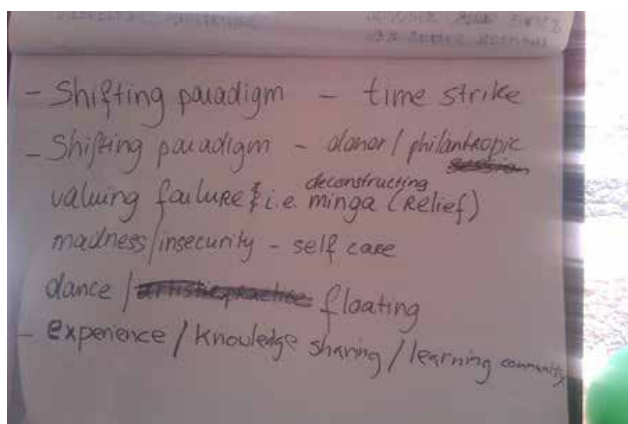 - Shifting paradigm - time strike
- Shifting paradigm - donor / philantropic
valuing failure & i.e. deconstructing minga (Relief)
madness/insecurity - self care
dance / floating
- experience / knowledge sharing / learning community